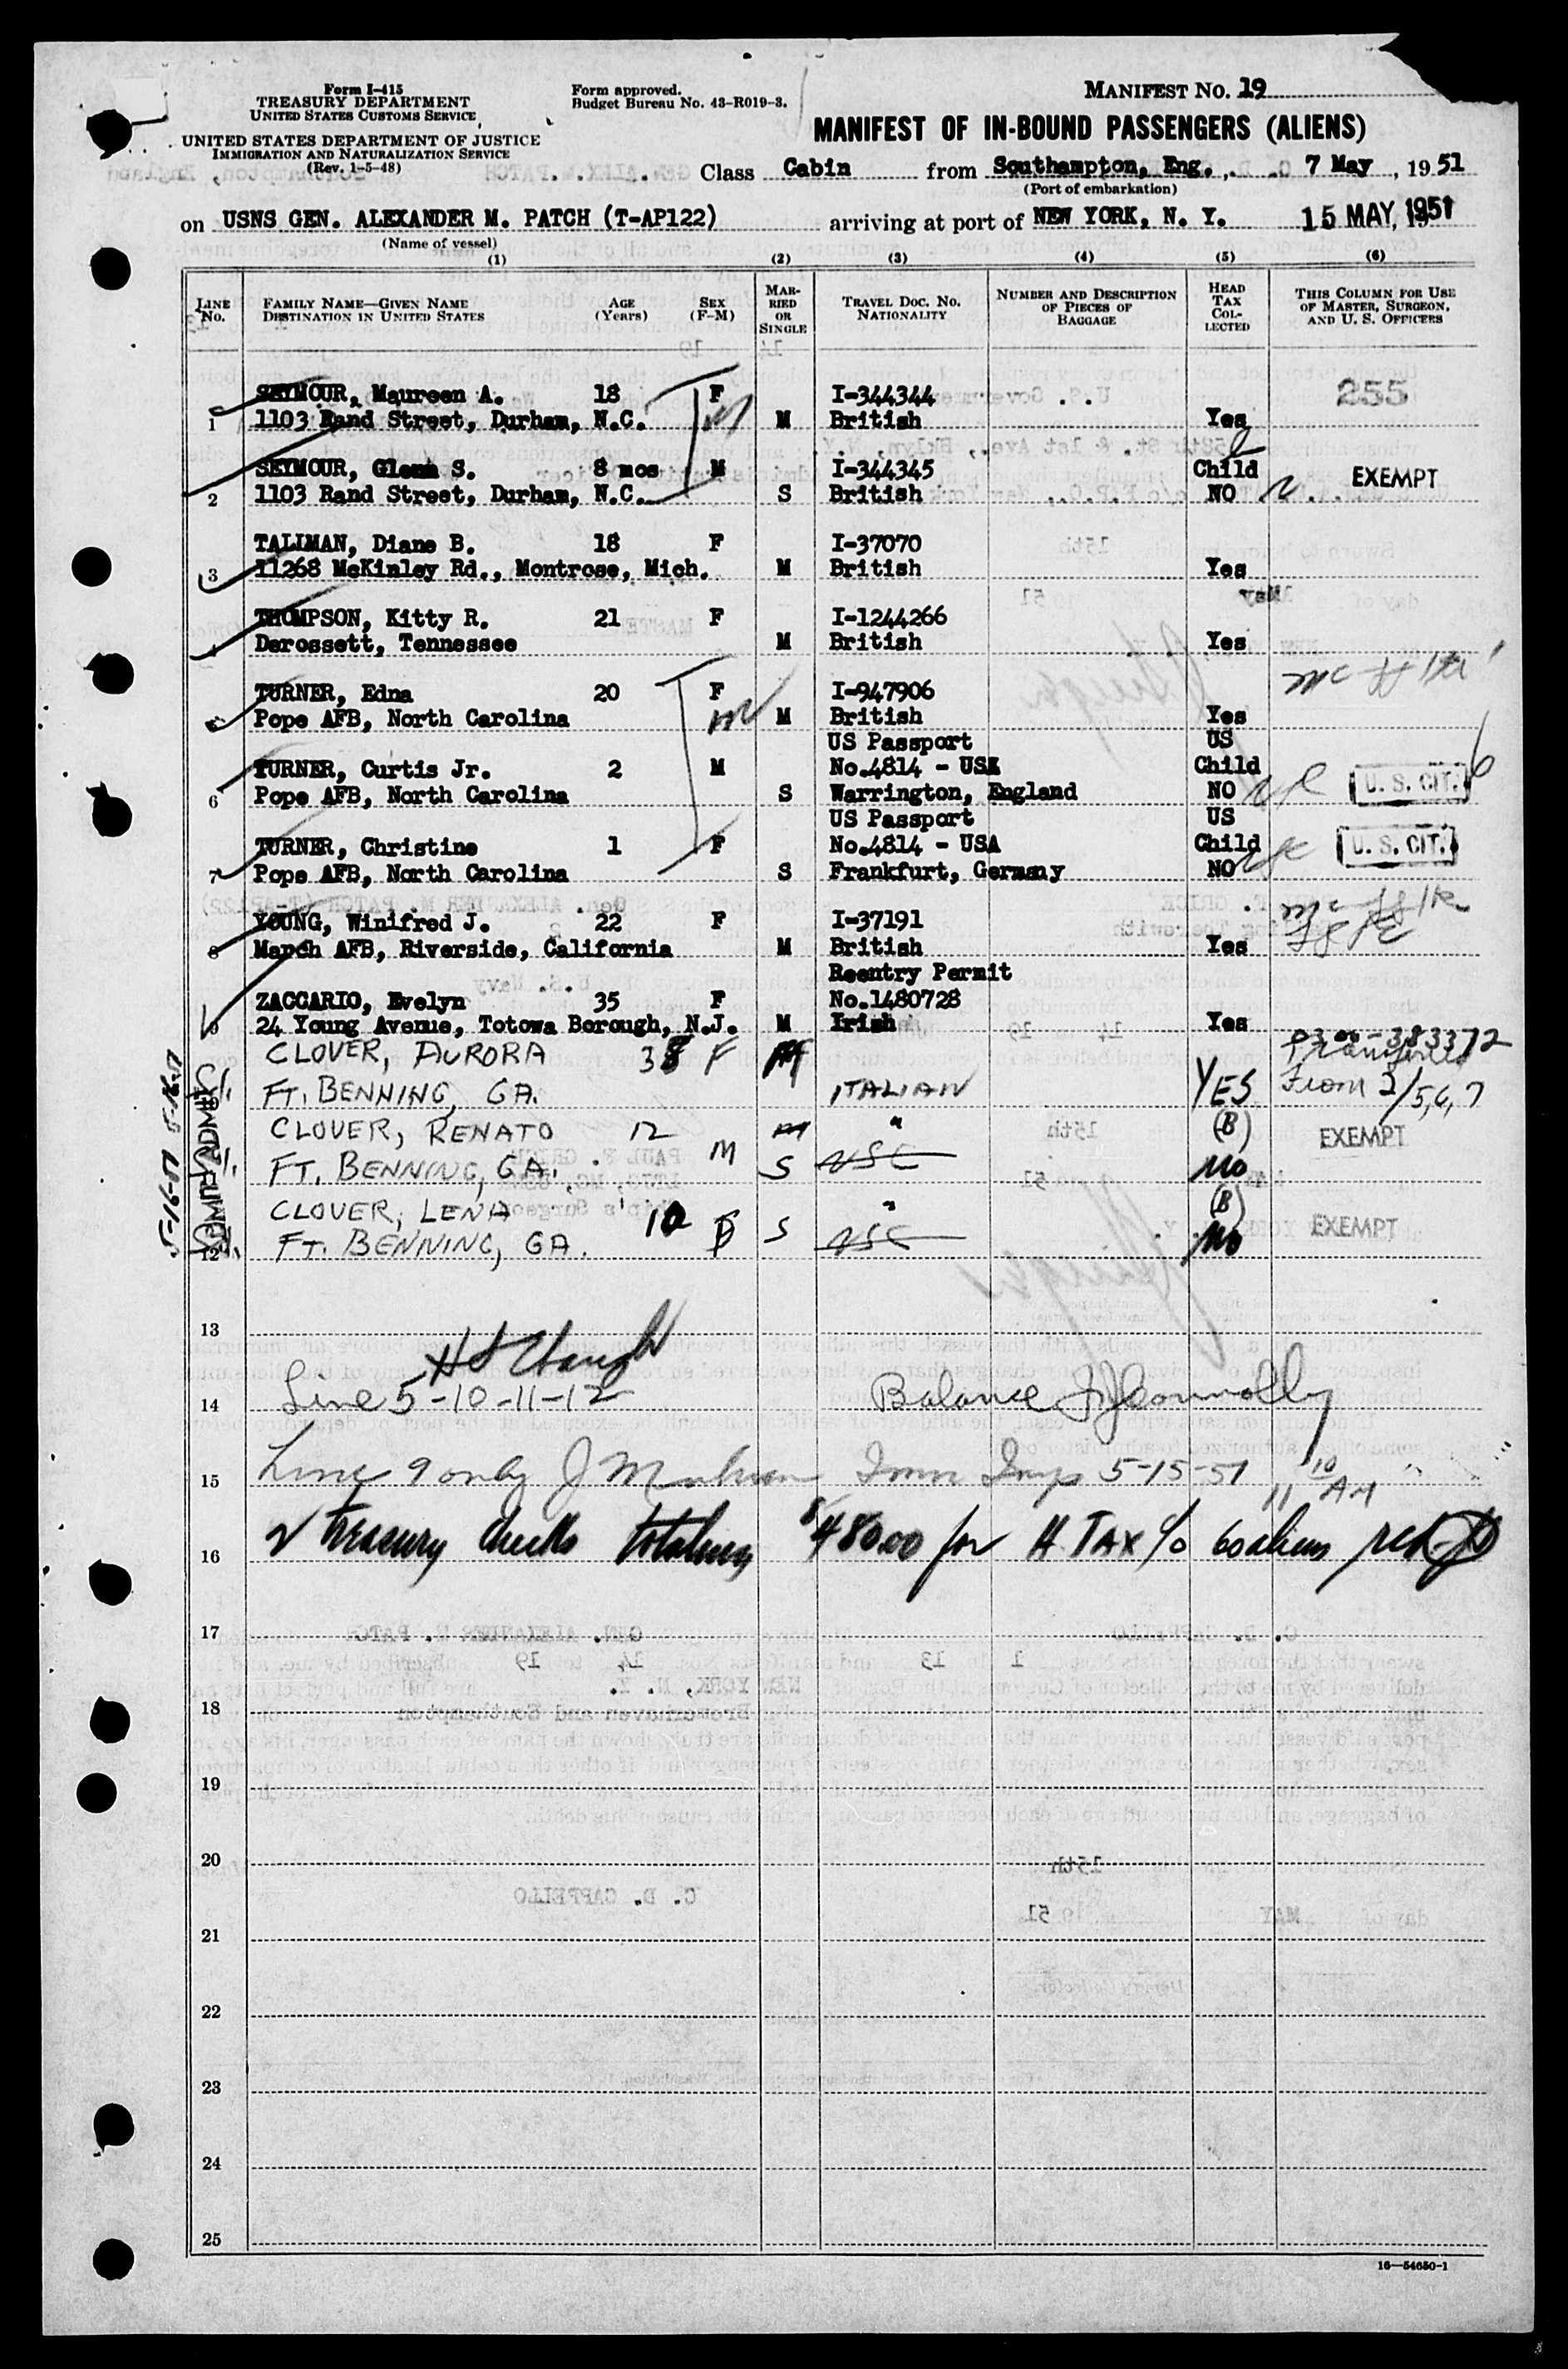 Form I-415
TREASURY DEPARTMENT
UNITED STATES CUSTOMS SERVICE
UNITED STATES DEPARTMENT OF JUSTICE
IMMIGRATION AND NATURALIZATION SERVICE
(Rev. 1-5-48)
Form approved.
Budget Bureau No. 43-R019-3.
MANIFEST NO. 19
MANIFEST OF IN-BOUND PASSENGERS (ALIENS)
Class Cabin from Southampton, Eng., 7 May, 1951
(Port of embarkation)
on USNS GEN. ALEXANDER M. PATCH (T-AP122) arriving at port of NEW YORK, N. Y. 15 MAY, 1951
(Name of vessel)
(1) (2) (3) (4) (5) (6)
LINE No. FAMILY NAME—GIVEN NAME DESTINATION IN UNITED STATES AGE (Years) SEX (F-M) MARRIED OR SINGLE TRAVEL DOC. NO. NATIONALITY NUMBER AND DESCRIPTION OF PIECES OF BAGGAGE HEAD TAX COLLECTED THIS COLUMN FOR USE OF MASTER, SURGEON, AND U. S. OFFICERS
SEYMOUR, Maureen A. 18 F I-344344 255
1 1103 Rand Street, Durham, N.C. M British Yes
SEYMOUR, Glenn S. 8 mos M I-344345 Child EXEMPT
2 1103 Rand Street, Durham, N.C. S British NO
TALLMAN, Diane B. 18 F I-37070
3 11268 McKinley Rd., Montrose, Mich. M British Yes
THOMPSON, Kitty R. 21 F I-1244266
4 Derossett, Tennessee M British Yes
TURNER, Edna 20 F I-947906
5 Pope AFB, North Carolina M British Yes
US Passport US
TURNER, Curtis Jr. 2 M No.4814 - USA Child U. S. CIT.
6 Pope AFB, North Carolina S Warrington, England NO
US Passport US
TURNER, Christine 1 F No.4814 - USA Child U. S. CIT.
7 Pope AFB, North Carolina S Frankfurt, Germany NO
YOUNG, Winifred J. 22 F I-37191
8 March AFB, Riverside, California M British Yes
Reentry Permit
ZACCARIO, Evelyn 35 F No.1480728
9 24 Young Avenue, Totowa Borough, N.J. M Irish Yes
0300-383372
CLOVER, AURORA 38 F M Transferred
FT. BENNING, GA. ITALIAN YES From 2/5,6,7
CLOVER, RENATO 12 M " (B) EXEMPT
FT. BENNING, GA. S USC NO
CLOVER, LENA 10 F S " (B)
12 FT. BENNING, GA. USC NO EXEMPT
5-16-51
13
14 Line 5-10-11-12 Balance
15 Line 9 only Imm Insp 5-15-51 11 10 AM
16 Treasury checks totaling $480.00 for H TAX 60 aliens
17
18
19
20
21
22
23
24
25
16—54650-1